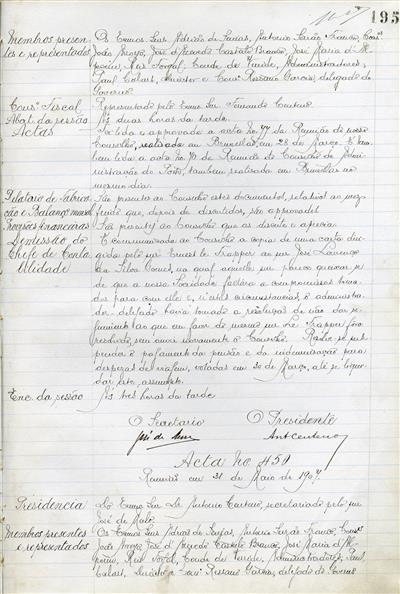 195
Membros presen-
tes e representados
Os Exmos Snrs Adriões de Seixas, Antonio Serrão Franco, Consº
João Arroyo, José d'Azevedo Castello Branco, José Maria d'Al-
poim, Ruy Jorge, Conde de Veride, Administradores;
Paul Calart, director e Consº Rossano Garcia, delegado do
Governo
Consº Fiscal
Representado pelo Exmo Snr Fernando Centeno
Abertª da sessão
Ás duas horas da tarde
Actas
Foi lida e approvada a acta nº 77 da Reunião de nosso
Conselho, realisada em Bruxellas, em 28 de Março. E tam-
bem lida a acta nº da Reunião do Conselho de Admi-
nistração do Porto, tambem realisada em Bruxellas no
mesmo dia
Relatorio de Fabrica-
ção e Balanço mensal
São presentes ao Conselho estes documentos, relativos ao mez
findo que, depois de discutidos, são approvados
Previsões financeiras
São presentes ao Conselho que as discute e aprecia
Demissão do
Chefe de Conta-
bilidade
É communicada ao Conselho a copia de uma carta diri-
gida pelo snr Ernesto Trappers ao snr José Lourenço
da Silva Gomes, na qual aquelle snr parece queixar-se
de que a nossa Sociedade faltára a compromissos toma-
dos para com elle e, n'estas circumstancias, o administra-
dor delegado havia tomado a resolução de não dar se-
guimento ao que em favor do mesmo snr Trappers fôra
resolvido, sem ouvir novamente o Conselho. Resolve-se sus-
pender o pagamento da pensão e da indemnisação para
despezas de viagem, votadas em 30 de Março, até se liqui-
dar este assumpto.
Enc. da sessão
Ás tres horas da tarde
O Secretario
O Presidente
José de
Ant Centeno
Acta Nº 451
Reunião em 31 de Maio de 1907.
Presidencia
Do Exmo Snr Dr Antonio Centeno, secretariado pelo snr
José de Mello
Membros presentes
e representados
Os Exmos Snrs Adriões de Seixas, Antonio Serrão Franco, Consº
João Arroyo, José d'Azevedo Castello Branco, José Maria d'Al-
poim, Ruy Jorge, Conde de Veride, Administradores; Paul
Calart, director e Consº Rossano Garcia, delegado do Governo